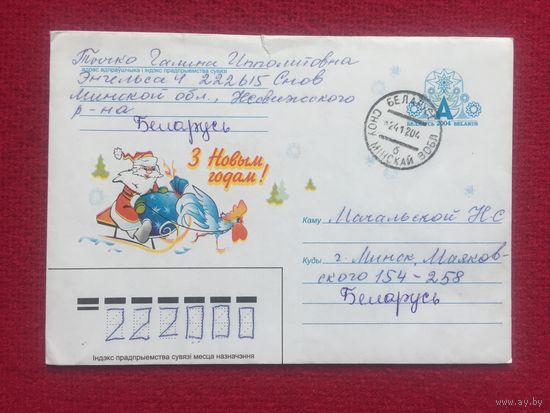 Точко Галина Ипполитовна
адрас адпраўшчыка і індэкс прадпрыемства сувязі
Энгельса 4 222615 Снов
Минской обл., Несвижского
р-на
Беларусь
А
БЕЛАРУСЬ 2004 BELARUS
БЕЛАРУСЬ
СНОУ
МІНСКАЙ ВОБЛ
б
З Новым
годам!
Каму Мачальской Н.С
Куды г. Минск, Маяков-
ского 154-258
Беларусь
222000
Індэкс прадпрыемства сувязі месца назначэння
www.ay.by